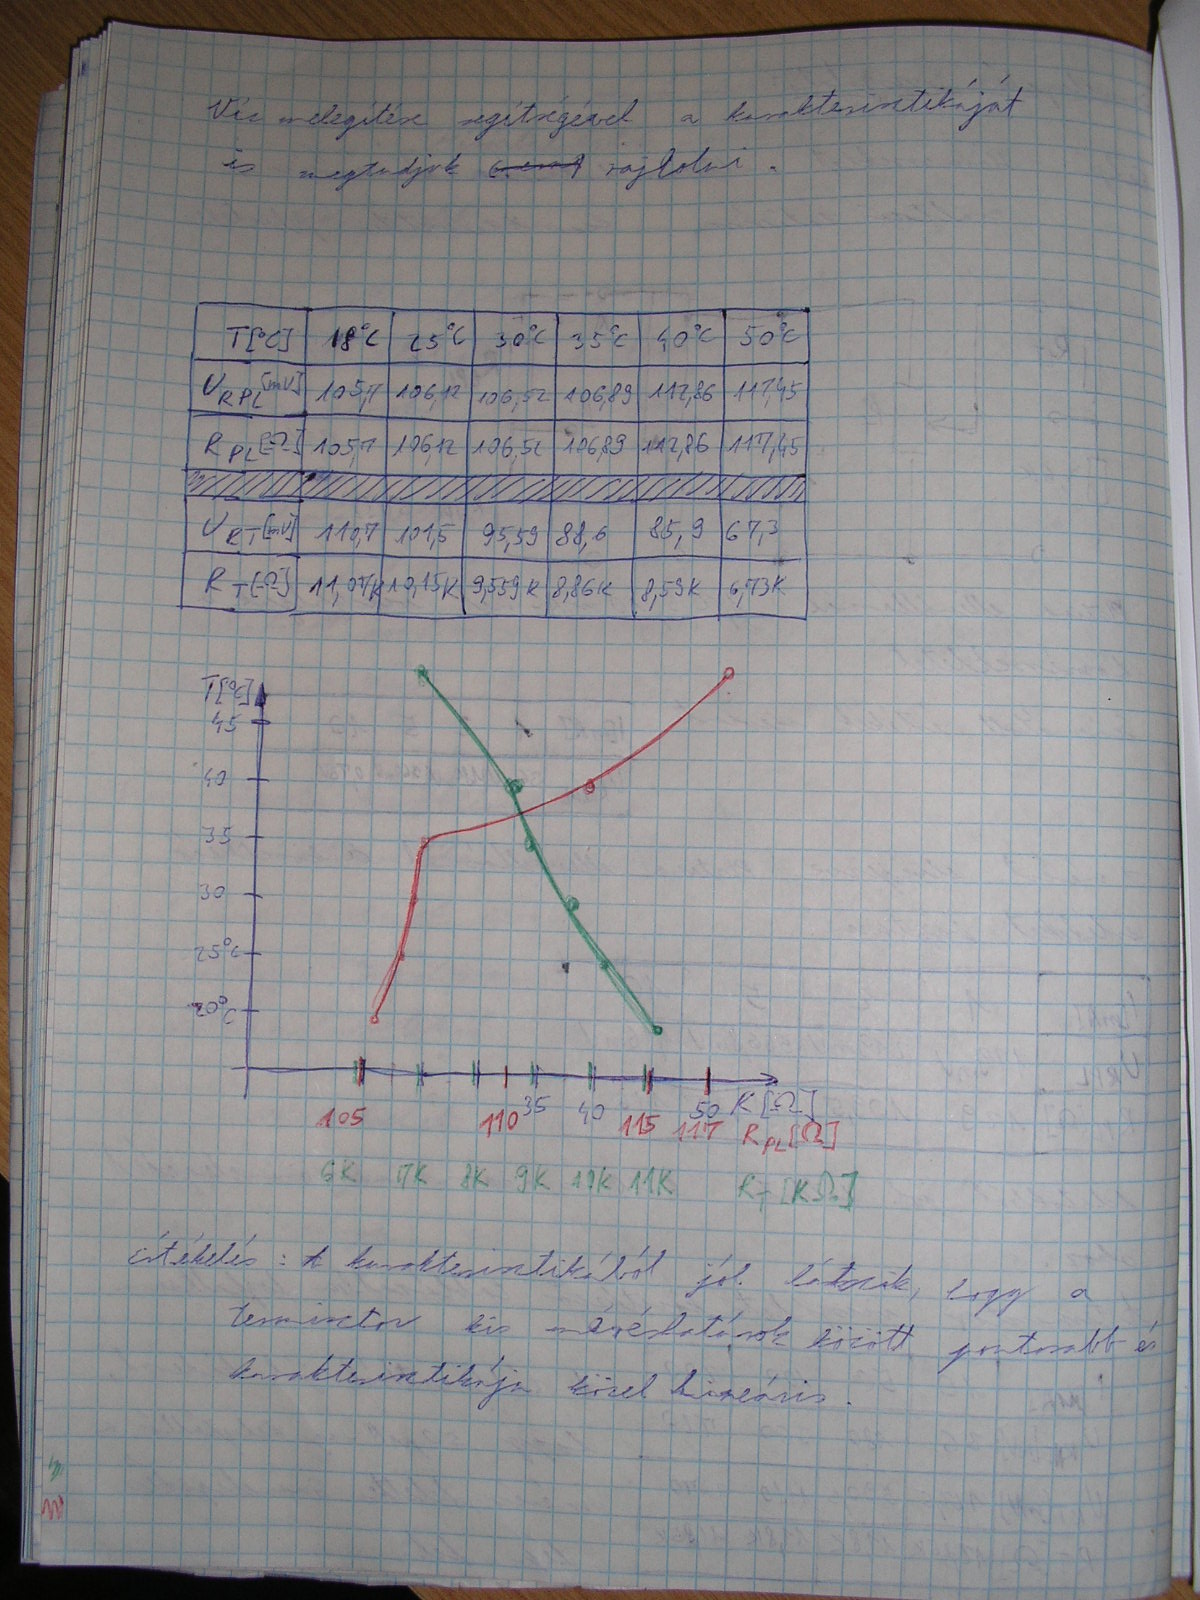 Víz melegítése segítségével a karakterisztikáját
is megtudjuk rajzolni.
T[°C] 18°C 25°C 30°C 35°C 40°C 50°C
U RPL [mV] 105,7 106,12 106,52 106,89 112,86 117,45
R PL [Ω] 105,7 106,12 106,52 106,89 112,86 117,45
U RT [mV] 110,7 101,5 95,59 88,6 85,9 67,3
R T [Ω] 11,07K 10,15K 9,559K 8,86K 8,59K 6,73K
T[°C]
45
40
35
30
25°C
20°C
35 40 50 K [Ω]
105 110 115 117 R PL [Ω]
6K 7K 8K 9K 10K 11K R T [KΩ]
Értékelés: A karakterisztikából jól látszik, hogy a
termisztor kis méréshatárok között pontosabb és
karakterisztikája közel lineáris.